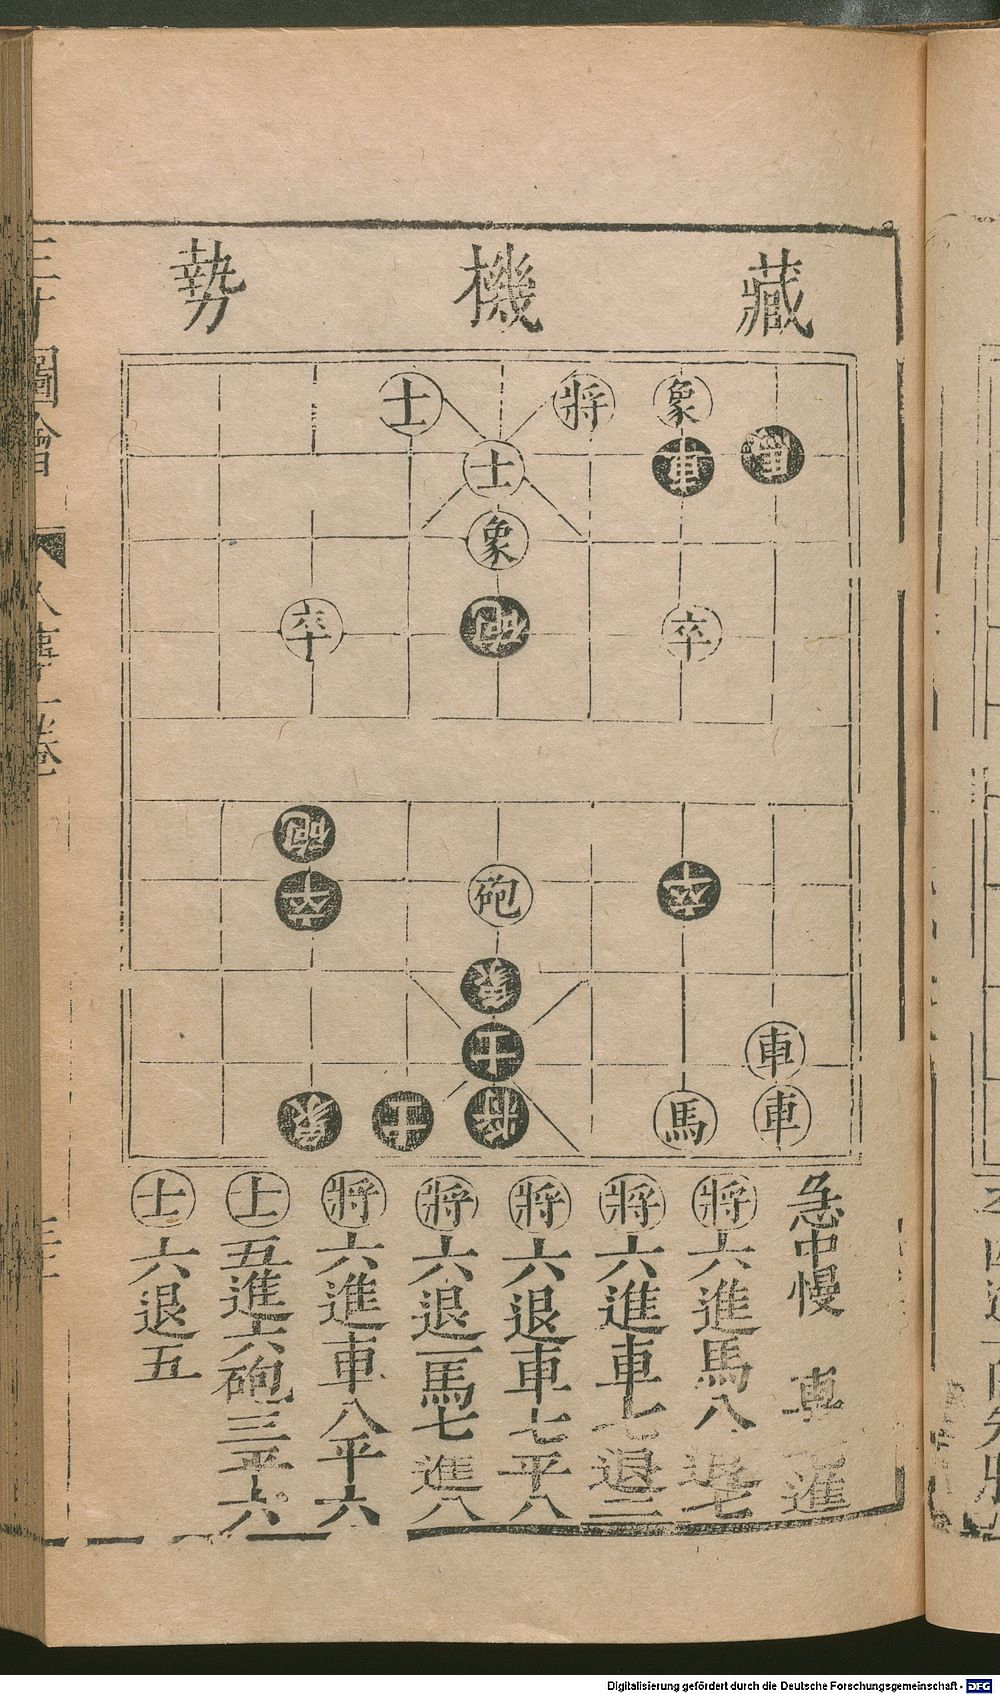 藏機勢
士 將 象
車
士
象
卒 砲 卒
砲
卒 砲 卒
象
士 車
象 士 將 馬 車
急中慢 車 進
將六進馬八退七
將六進車七退二
將六退車七平八
將六退一馬七進八
將六進車八平六
士五進六砲三平六
士六退五
三才圖會
人事一卷
Digitalisierung gefördert durch die Deutsche Forschungsgemeinschaft - DFG